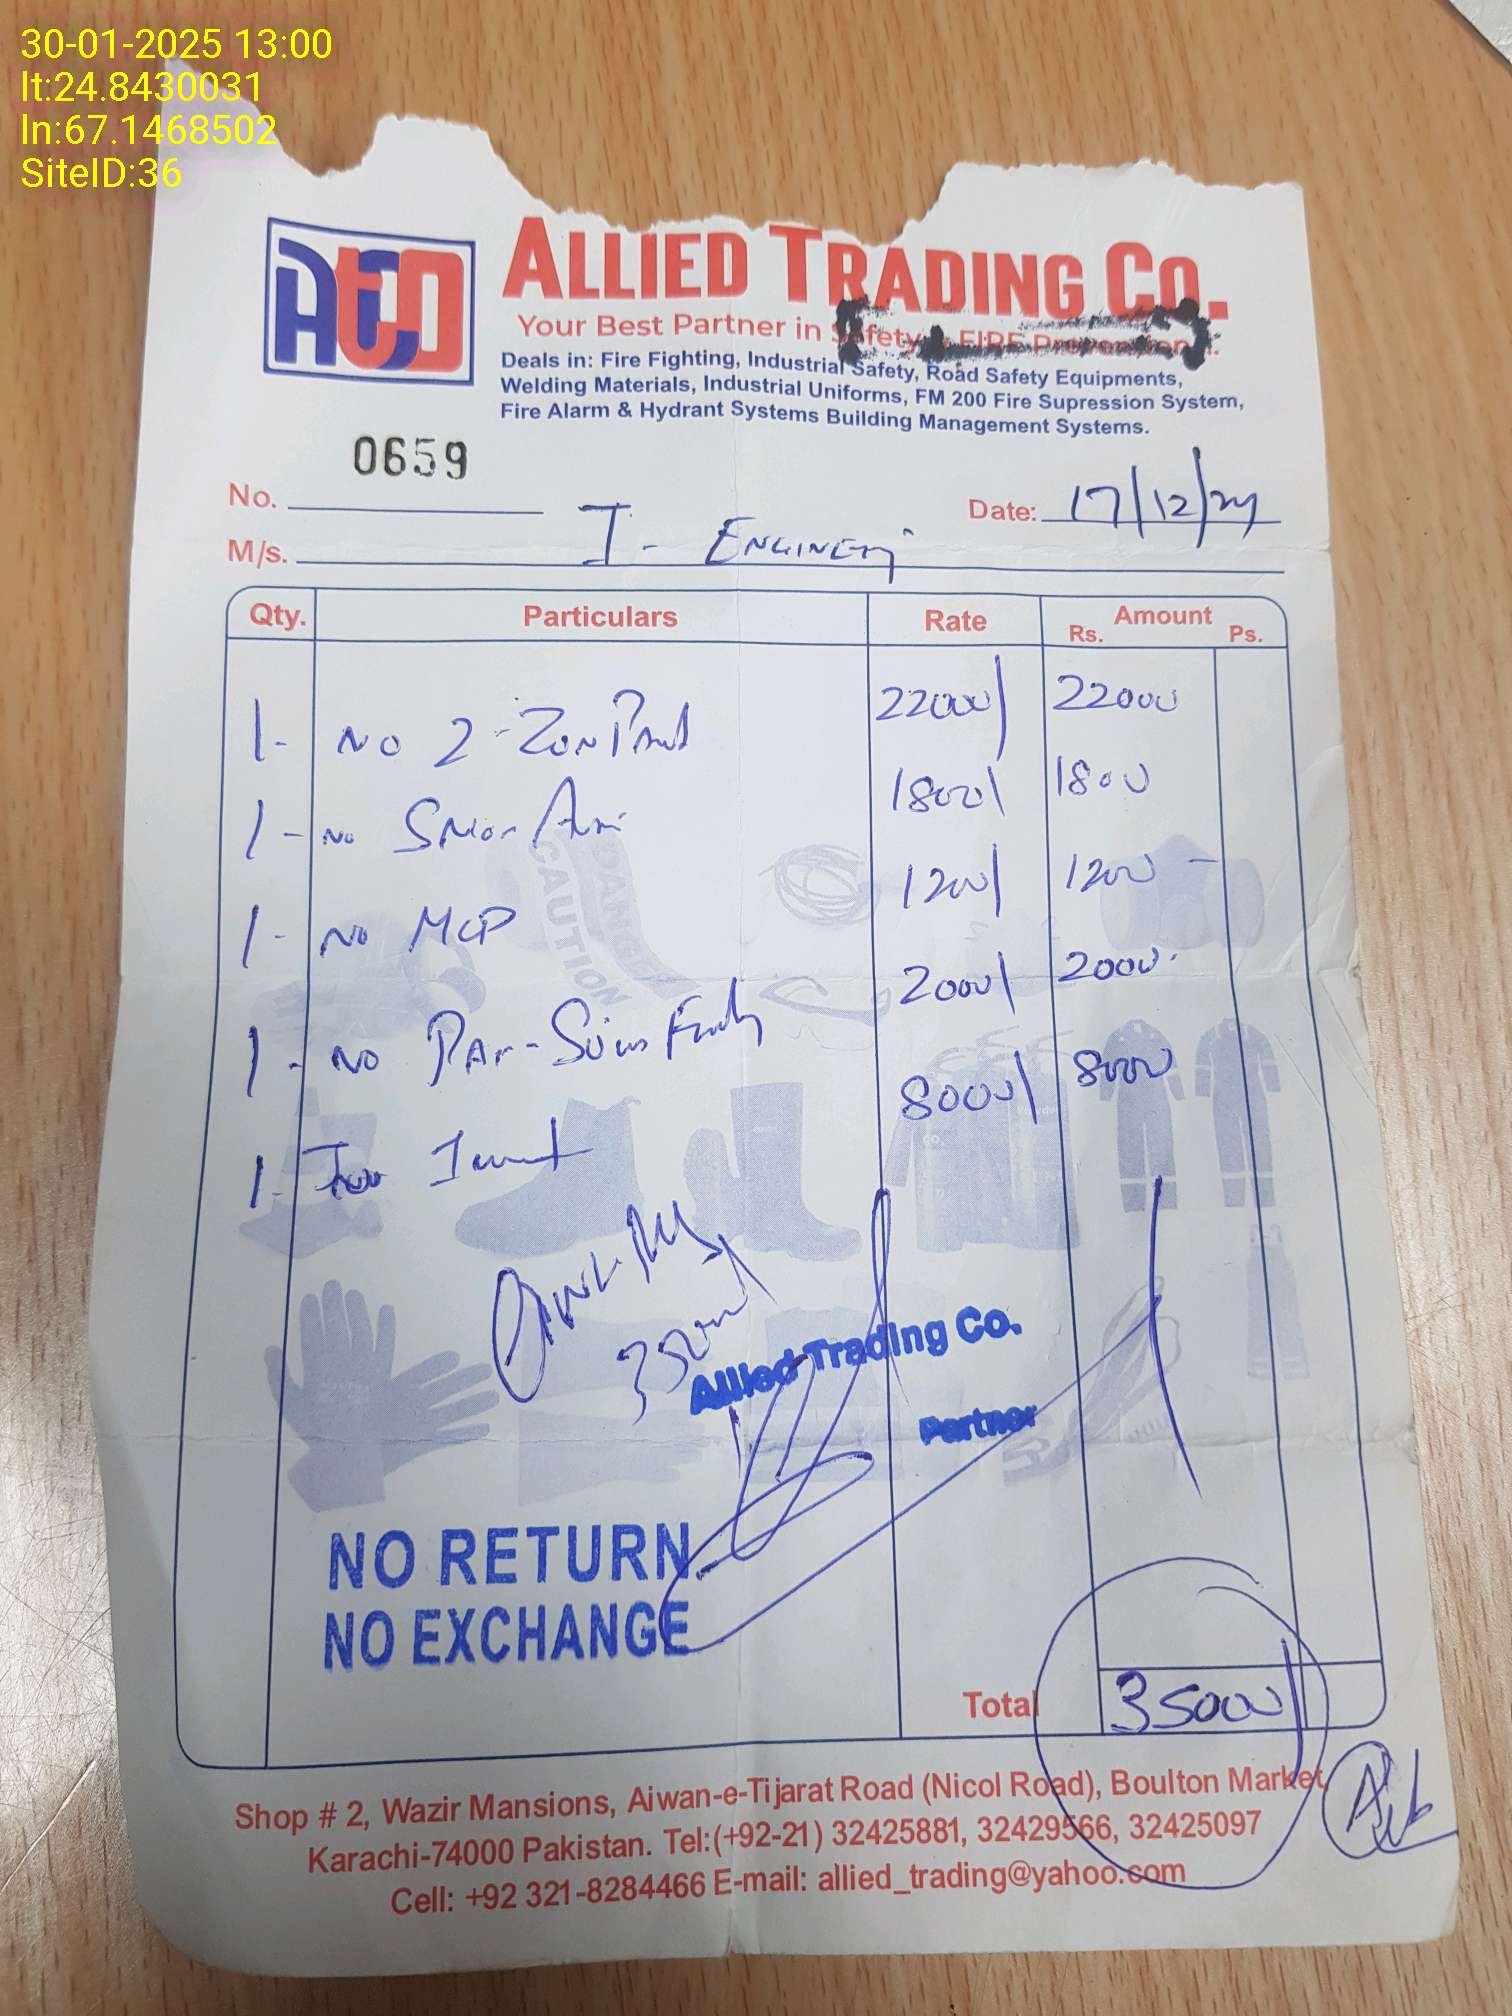 30-01-2025 13:00
lt:24.8430031
ln:67.1468502
SiteID:36
ATCO
ALLIED TRADING CO.
Your Best Partner in Safety & FIRE Prevention...
Deals in: Fire Fighting, Industrial Safety, Road Safety Equipments,
Welding Materials, Industrial Uniforms, FM 200 Fire Supression System,
Fire Alarm & Hydrant Systems Building Management Systems.
0659
No. Date: 17/12/24
M/s. I - ENGINEERING
Qty. Particulars Rate Amount
Rs. Ps.
1- NO 2-Zon 22000/ 22000
1- No 1800/ 1800
1- NO MCP 1200/ 1200 -
1- NO 2000/ 2000
1- 8000/ 8000
DANGER
CAUTION
35000/
Allied Trading Co.
Partner
NO RETURN
NO EXCHANGE
Total 35000/
Shop # 2, Wazir Mansions, Aiwan-e-Tijarat Road (Nicol Road), Boulton Market,
Karachi-74000 Pakistan. Tel:(+92-21) 32425881, 32429566, 32425097
Cell: +92 321-8284466 E-mail: allied_trading@yahoo.com